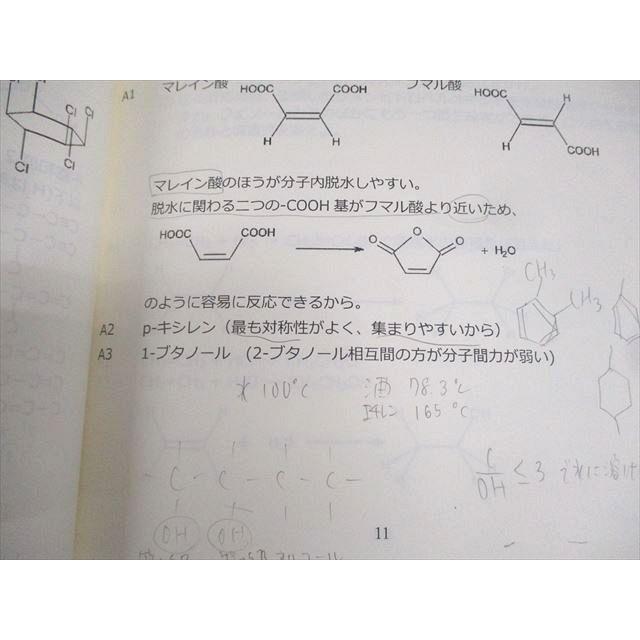 A1 マレイン酸 フマル酸
HOOC COOH HOOC H
H H H COOH
Cl
マレイン酸のほうが分子内脱水しやすい。
脱水に関わる二つの-COOH 基がフマル酸より近いため、
HOOC COOH O O O + H₂O
のように容易に反応できるから。
CH₃
CH₃
A2 p-キシレン（最も対称性がよく、集まりやすいから）
A3 1-ブタノール （2-ブタノール相互間の方が分子間力が弱い）
水 100℃ 酒 78.3℃
165 ℃
C/OH ≤ 3
- C - C - C - C -
OH OH
11